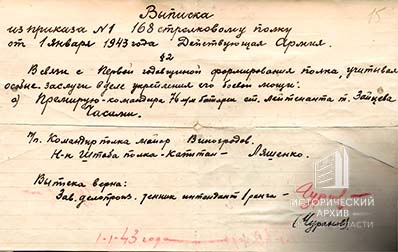 15
Выписка
из приказа №1 168 стрелковому полку
от 1 января 1943 года Действующая Армия.
§2
В связи с Первой годовщиной формирования полка, учитывая
особые заслуги в деле укрепления его боевой мощи:
а) Премирую - командира 76 м/м батареи ст. лейтенанта т. Зайцева
Часами.
п/п. Командир полка майор Виноградов.
Н-к Штаба полка - Капитан - Ляшенко.
Выписка верна:
Зав. делопроиз. техник интендант I ранга -
1-1-43 года
ИСТОРИЧЕСКИЙ
АРХИВ
ОБЛАСТИ